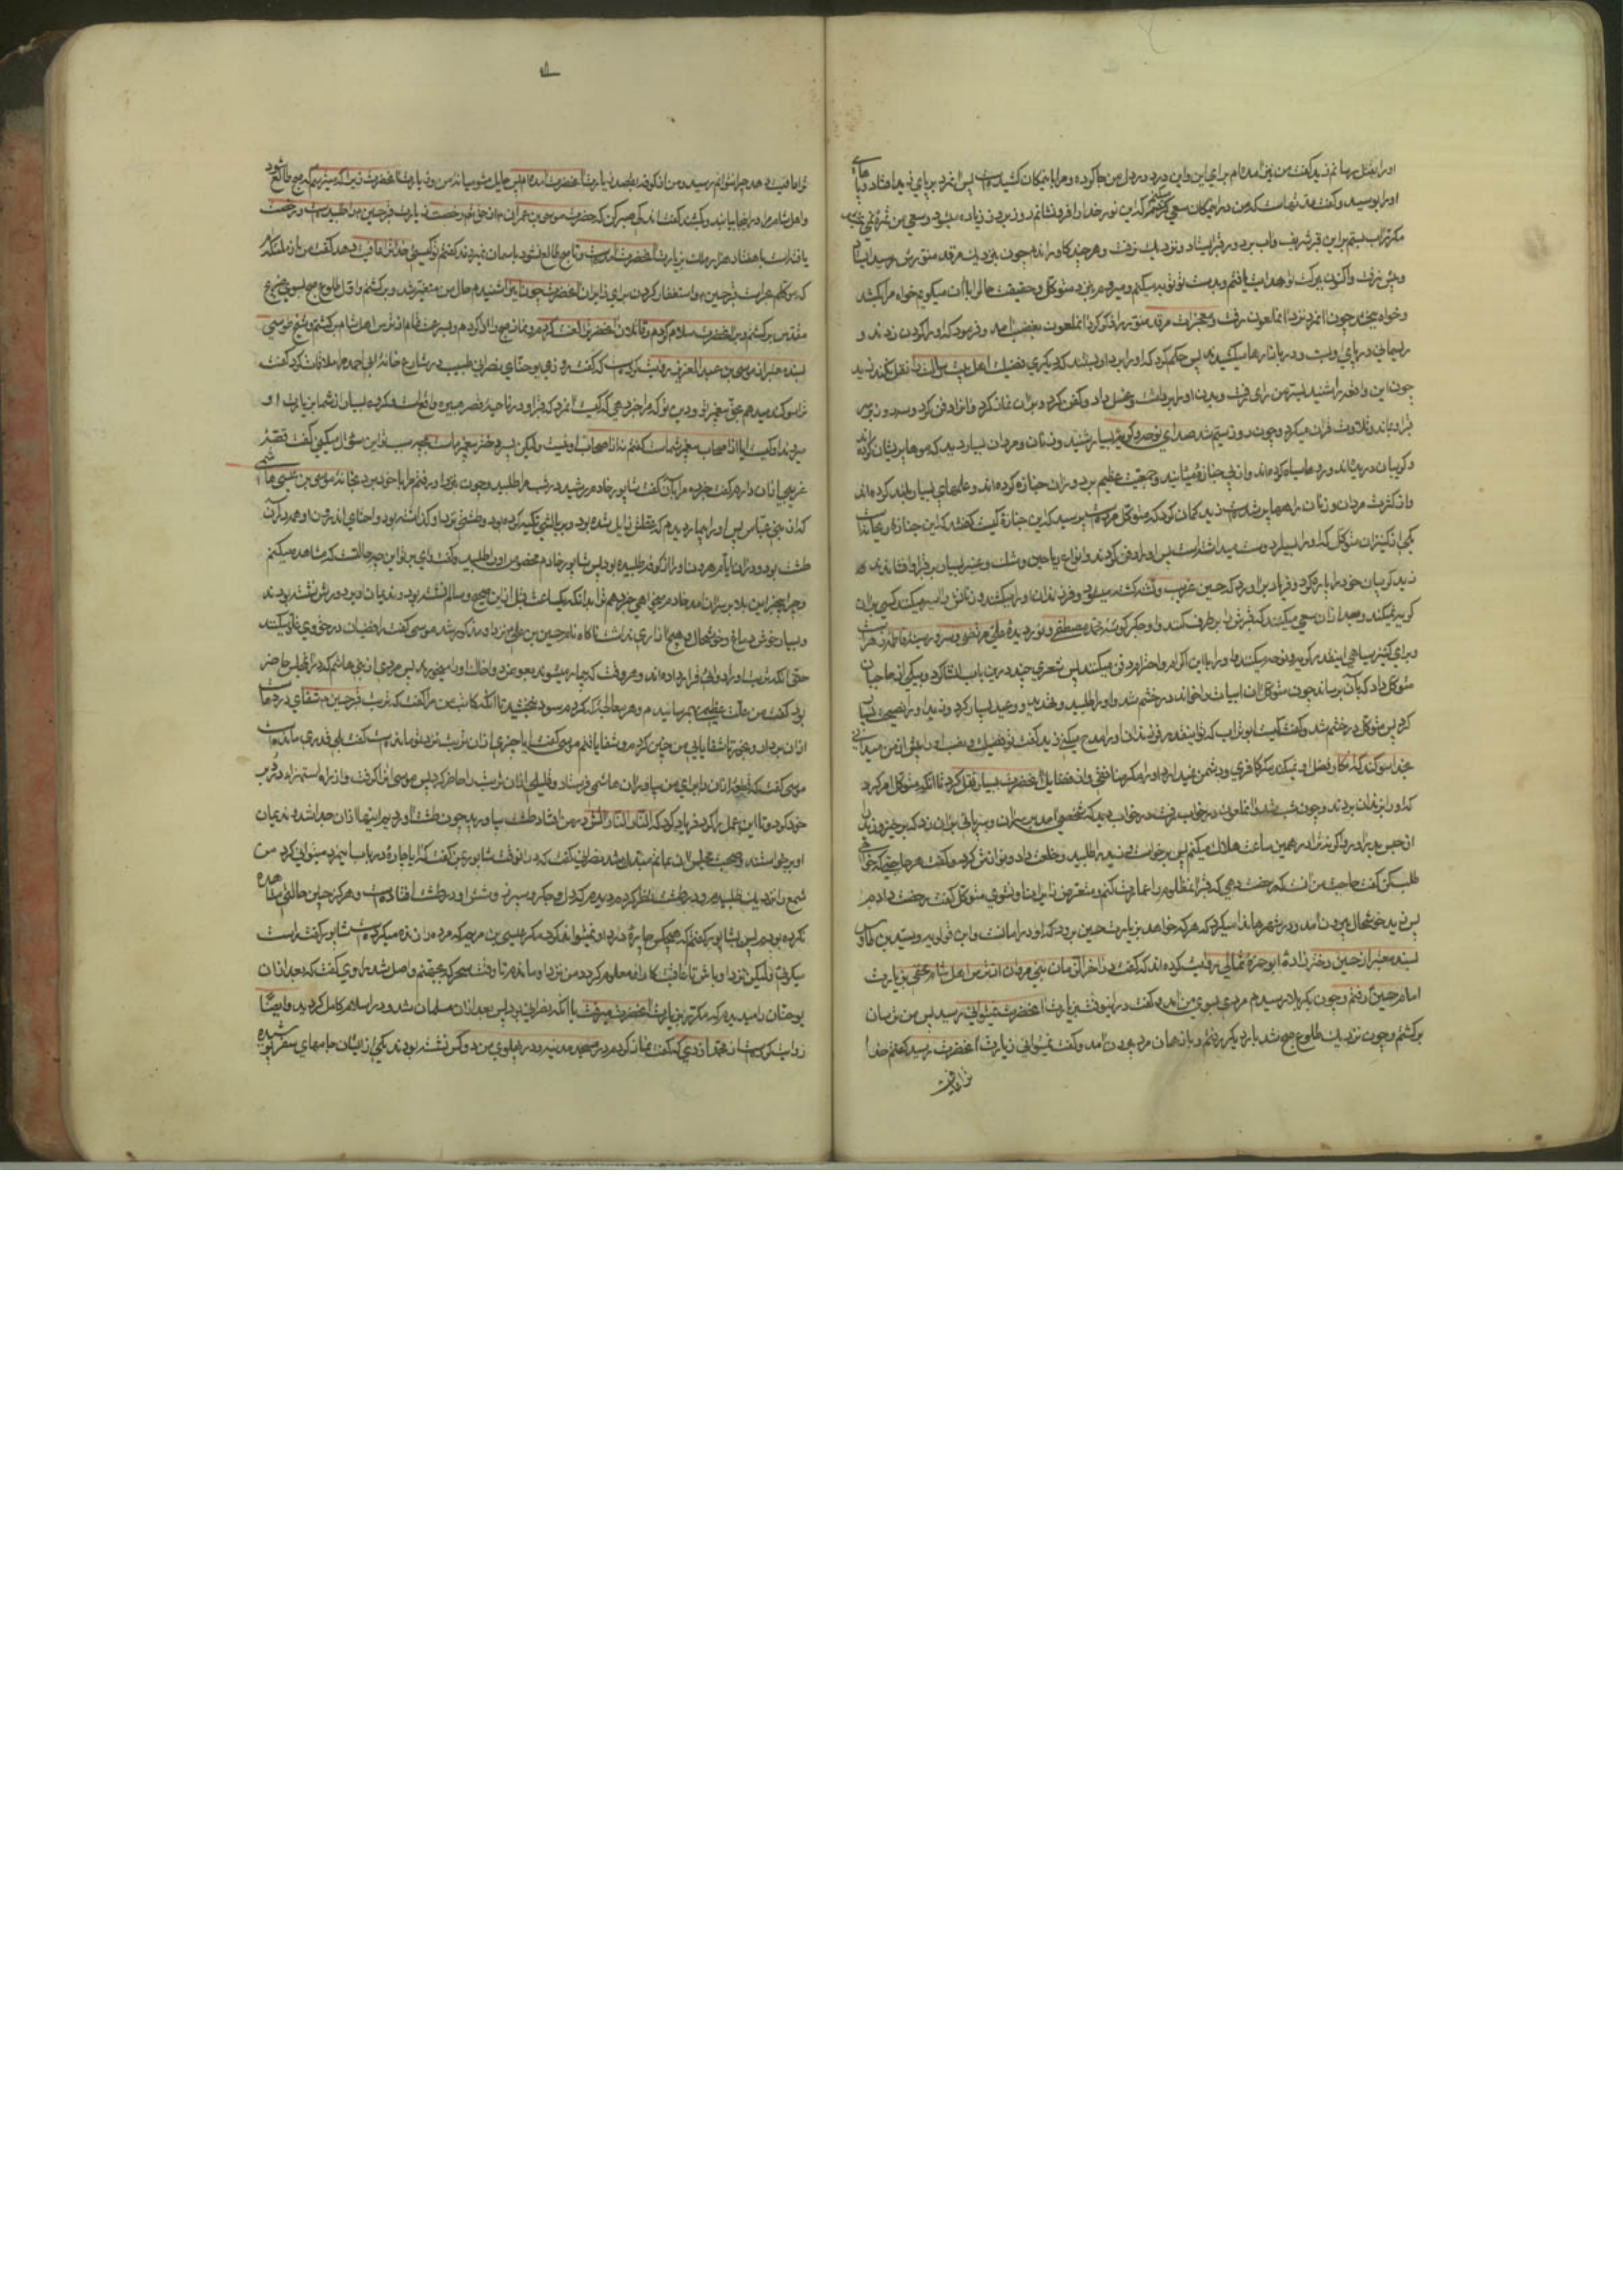 او را بقتل رسانم زید گفت من نیز آمده‌ام برای این و این درد در دل من جا کرده و مرا باین مکان کشیده است پس آن مرد بر پای زید افتاد و پاهای
او را بوسید و گفت مدتهاست که من در این مکان سعی میکنم که این نور خدا را فرو نشانم روز بروز زیاده میشود و سعی من ثمره نمی
مکرر آب بستم بر این قبر شریف و آب بر دور قبر ایستاد و نزدیک نرفت و هر چند گاو راندم چون بنزدیک مرقد منورش رسید ایستاد
و پیش نرفت و اکنون ببرکت تو هدایت یافتم و بدست تو توبه میکنم و میروم بنزد متوکل و حقیقت حال را باو میگویم خواه مرا بکشد
و خواه ببخشد چون آن مرد نزد آن ملعون رفت و معجزات مرقد منور را ذکر کرد آن ملعون بغضب آمد و فرمود که او را گردن زدند و
ریسمانی در پای او بست و در بازارها میکشیدند پس حکم کرد که او را بردار کشند که دیگری فضیلت اهل بیت رسالت را نقل نکند زید
چون این واقعه را شنید بسر من رای رفت و بدن او را برداشت و غسل داد و کفن کرد و بر آن نماز کرد و آنرا دفن کرد و سه روز بر سر
قبر او ماند و تلاوت قرآن میکرد و چون روز سیم شد صدای نوحه و گریه بسیار شنید و زنان و مردان بسیار دید که موها پریشان کرده‌اند
و گریبان دریده‌اند و روها سیاه کرده‌اند و از پی جنازه میآیند و جمعیت عظیم بر دور آن جنازه کرده‌اند و علمهای بسیار بلند کرده‌اند
و از کثرت مردان و زنان راهها پر شده است زید گمان کرد که متوکل مرده است پرسید که این جنازه کیست گفتند که این جنازه ریحانه است
یکی از کنیزان متوکل که او را بسیار دوست میداشته است پس او را دفن کردند و انواع ریاحین و مشک و عنبر بسیار بر قبر او افشاندند
زید گریبان خود را پاره کرد و فریاد بر آورد که حسین غریب و تشنه کشته میشود و فرزندان او را میکشند و زنانش را اسیر میکنند کسی بر آن
گریه نمیکند و بعد از آن سعی میکنند که قبرش را بر طرف کنند و او جگر گوشه محمد مصطفی و نور دیده علی مرتضی و سرور سینه فاطمه زهراست
و برای کنیز سیاهی اینقدر گریه و نوحه میکنند و او را با این اکرام و احترام دفن میکنند پس شعری چند در این باب انشا کرد و بیکی از حاجبان
متوکل داد که بآن برساند چون متوکل آن ابیات را خواند در خشم شد و او را طلبید و تهدید و وعید بسیار کرد و زید او را نصیحت بسیار
کرد پس متوکل در خشم شد و گفت کیست ابو تراب که تو اینقدر فرزندان او را مدح میکنی زید گفت تو فضیلت و نسب او را بیش از من میدانی
بخدا سوگند که انکار فضل او نمیکند مگر کافری و دشمن نمیدارد او را مگر منافقی و از فضایل آنحضرت بسیار نقل کرد تا آنکه متوکل امر کرد
که او را بزندان بردند و چون شب شد آن ملعون در خواب رفت در خواب دید که شخصی آمد بر سر آن و سر پائی بر آن زد که برخیز و زید را
از حبس بدر آور و اگر نه ترا در همین ساعت هلاک میکنم پس برخواست زید را طلبید و خلعت داد و نوازش کرد و گفت هر حاجتی که خواهی
طلب کن گفت حاجت من آنست که مرا رخصت دهی که قبر آن مظلوم را عمارت کنم و متعرض زایران او نشوی متوکل گفت رخصت دادم
پس زید خوشحال بیرون آمد و در شهرها ندا میکرد که هر که خواهد بزیارت حسین برود که او در امانست و ابن قولویه و سید بن طاوس
بسند معتبر از حسین دختر زاده ابو حمزه ثمالی روایت کرده‌اند که گفت در آخر زمان بنی مروان از ترس اهل شام مخفی بزیارت
امام حسین رفتم و چون بکربلا رسیدم مردی بسوی من آمد و گفت در اینوقت زیارت آنحضرت نمیتوانی رسید پس من ترسان
برگشتم و چون نزدیک طلوع صبح شد بار دیگر رفتم و باز همان مرد بیرون آمد و گفت نمیتوانی زیارت آنحضرت رسید گفتم خدا
ترا عافیت
ترا عافیت دهد چرا نتوانم رسید و من از کوفه بقصد زیارت آنحضرت آمده‌ام پس حایل مشو میان من و زیارت آنحضرت زیرا که میترسم که صبح طالع شود
و اهل شام مرا در اینجا بیابند و بکشند گفت اندکی صبر کن که حضرت موسی بن عمران از حق تعالی رخصت زیارت قبر حسین طلبیده است و رخصت
یافته است با هفتاد هزار ملک بزیارت آنحضرت آمده است و تا صبح طالع نشود باسمان نمیروند گفتم تو کیستی خدا ترا عافیت دهد گفت من از ملائکه‌ام
که موکلم بحراست قبر حسین و استغفار کردن برای زایران آنحضرت چون این را شنیدم حال من متغیر شد و برگشتم و اول طلوع صبح بسوی ضریح
مقدس برگشتم و بر آنحضرت سلام کردم و قاتلان آنحضرت را لعنت کردم و نماز صبح را ادا کردم و بسرعت تمام از ترس اهل شام برگشتم و شیخ طوسی
بسند معتبر از موسی بن عبد العزیز روایت کرده است که گفت روزی یوحنای نصرانی طبیب در شارع خانه ابی احمد مرا ملاقات کرد و گفت
ترا سوگند میدهم بحق پیغمبر تو و دین تو که مرا خبر دهی که کیست آنمرد که قبر او در ناحیه قصر هبیره واقع است و گروه بسیار از شما بزیارت او
میروند او کیست آیا از اصحاب پیغمبر شماست گفتم نه از اصحاب او نیست ولیکن پسر دختر پیغمبر ماست بچه سبب تو این سؤال میکنی گفت قصه
غریبی از آن دارم گفتم خبر ده مرا بآن گفت شاپور خادم هرون رشید در شب مرا طلبید و چون بنزد او رفتم مرا با خود برد بخانه موسی بن عیسی هاشمی
که از بنی عباس پس او را بیمار دیدم که عقلش زایل شده بود و بر بالشی تکیه کرده بود و طشتی نزد او گذاشته بود و احشای اندرون او همه در آن
طشت بود و در آن ایام هرون او را از کوفه طلبیده بود پس شاپور خادم مخصوص او را طلبید و گفت وای بر تو این چه حالتست که مشاهده میکنم
و چرا بچنین بلا بر سر آن آمد خادم گفت خبر دهم ترا بدانکه یکساعت قبل از این صحیح و سالم نشسته بود و ندیمان او بر دورش نشسته بودند
و بسیار خوش دماغ و خوشحال و هیچ آزاری نداشت ناگاه نام حسین بن علی نزد او مذکور شد موسی گفت رافضیان در حق وی غلو میکنند
حتی آنکه تربت او را دوائی قرار داده‌اند و هر وقت که بیمار میشوند بعوض دوا خاک او را میخورند پس مردی از بنی هاشم که در آن مجلس حاضر
بود گفت من علت عظیمی بهم رسانیدم و هر معالجه که کردم سود نبخشید تا آنکه کاتب من مرا گفت که تربت قبر حسین شفای دردهاست
از آن بردار و بخور تا شفا یابی من چنین کردم و شفا یافتم موسی گفت آیا چیزی از آن تربت نزد تو مانده است گفت بلی قدری مانده است
موسی گفت که قدری از آن را برای من بیاور آن هاشمی فرستاد و قلیلی از آن تربت را حاضر کرد پس موسی آنرا گرفت و از راه استهزا در دبر
خود کرد و تا این عمل را کرد فریاد کرد که النار النار آتش در من افتاد طشت بیاورید چون طشت آوردیم اینها از آن جدا شد و ندیمان
او برخواستند و صحبت مجلس آن بماتم مبدل شد نصرانی گفت که در آنوقت شاپور بمن گفت که آیا چاره در باب این مرد میتوانی کرد من
شمع را نزدیک طلبیدم و در طشت نظر کردم دیدم که دل و جگر و سپرز و شش او در طشت افتاده است و هرگز چنین حالتی مشاهده
نکرده بودم پس بشاپور گفتم که هیچکس چاره در این درد نمیتواند کرد مگر عیسی بن مریم که مرده را زنده میکرد شاپور گفت راست
میگوئی ولیکن نزد او باش تا عاقبت کار او معلوم گردد من نزد او ماندم تا وقت سحر که بجهنم واصل شد راوی گفت که بعد از آن
یوحنا را میدیدم که مکرر بزیارت آنحضرت میرفت با آنکه نصرانی بود پس بعد از آن مسلمان شد و در اسلام کامل گردید و ایضا
روایت کرده است از محمد ازدی که گفت نماز کردم در مسجد مدینه و در پهلوی من دو کس نشسته بودند یکی از ایشان جامهای سفر پوشیده